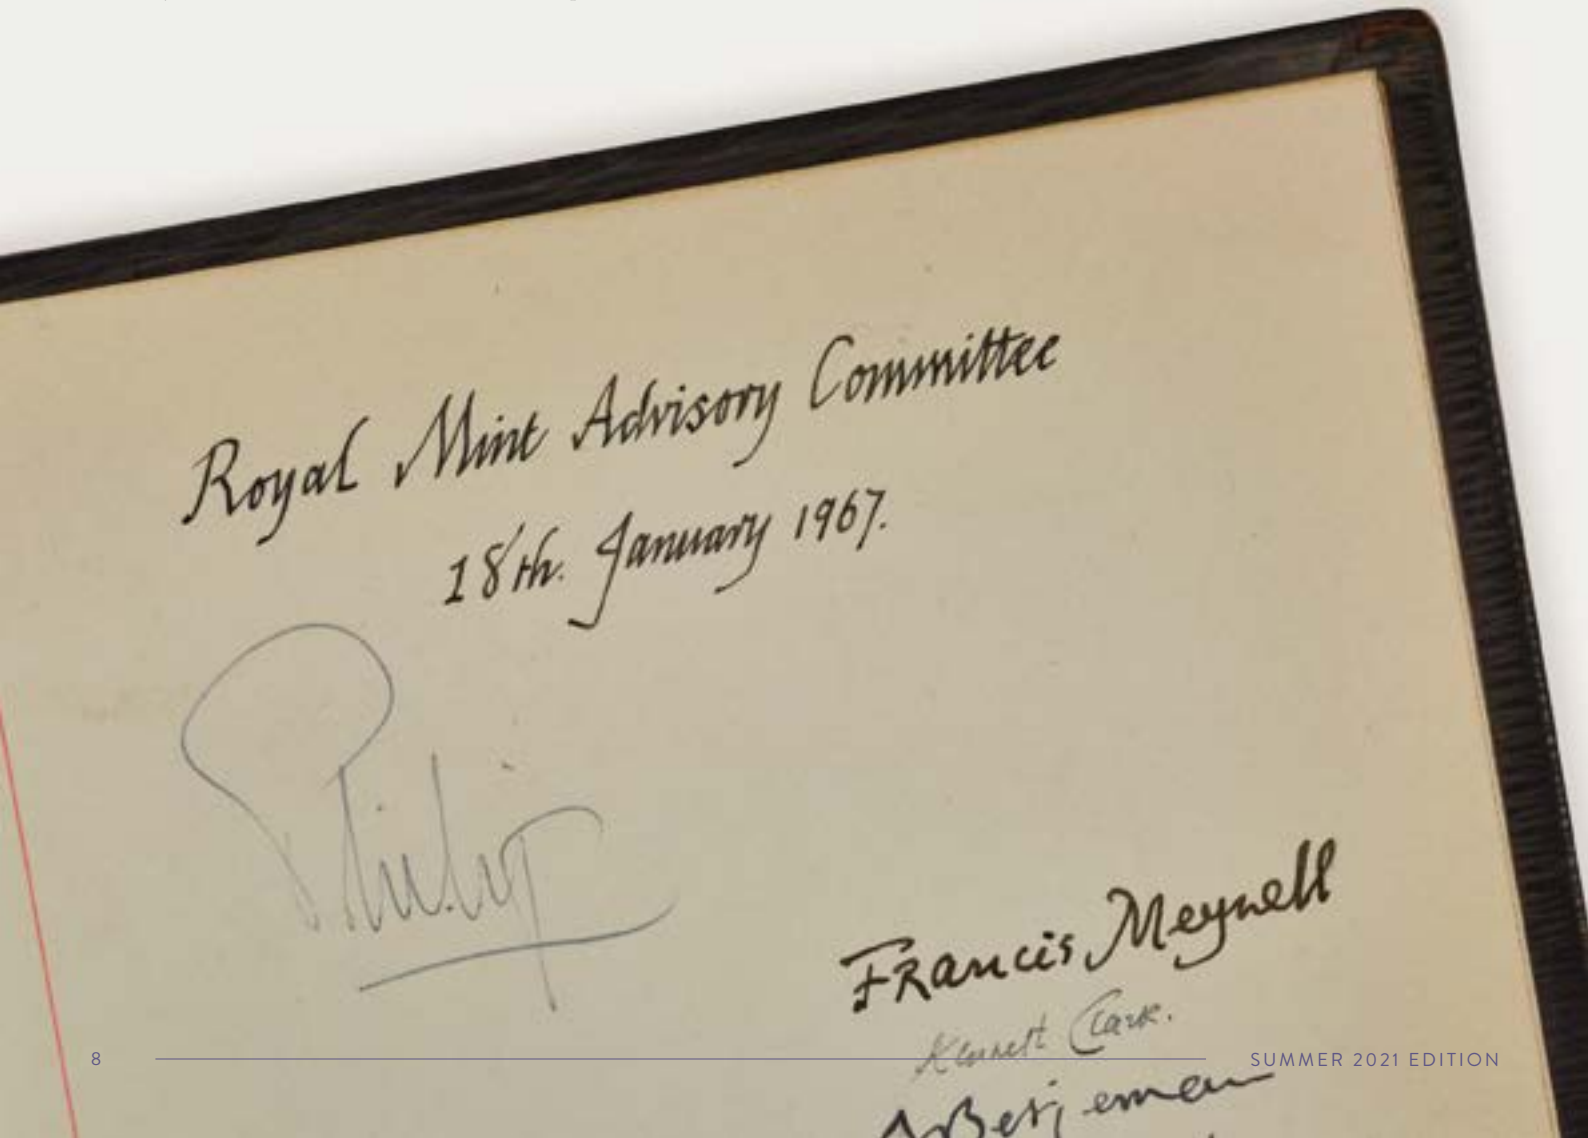 Royal Mint Advisory Committee
18th. January 1967.
Philip
Francis Meynell
Kenneth Clark.
Betjeman
8
SUMMER 2021 EDITION